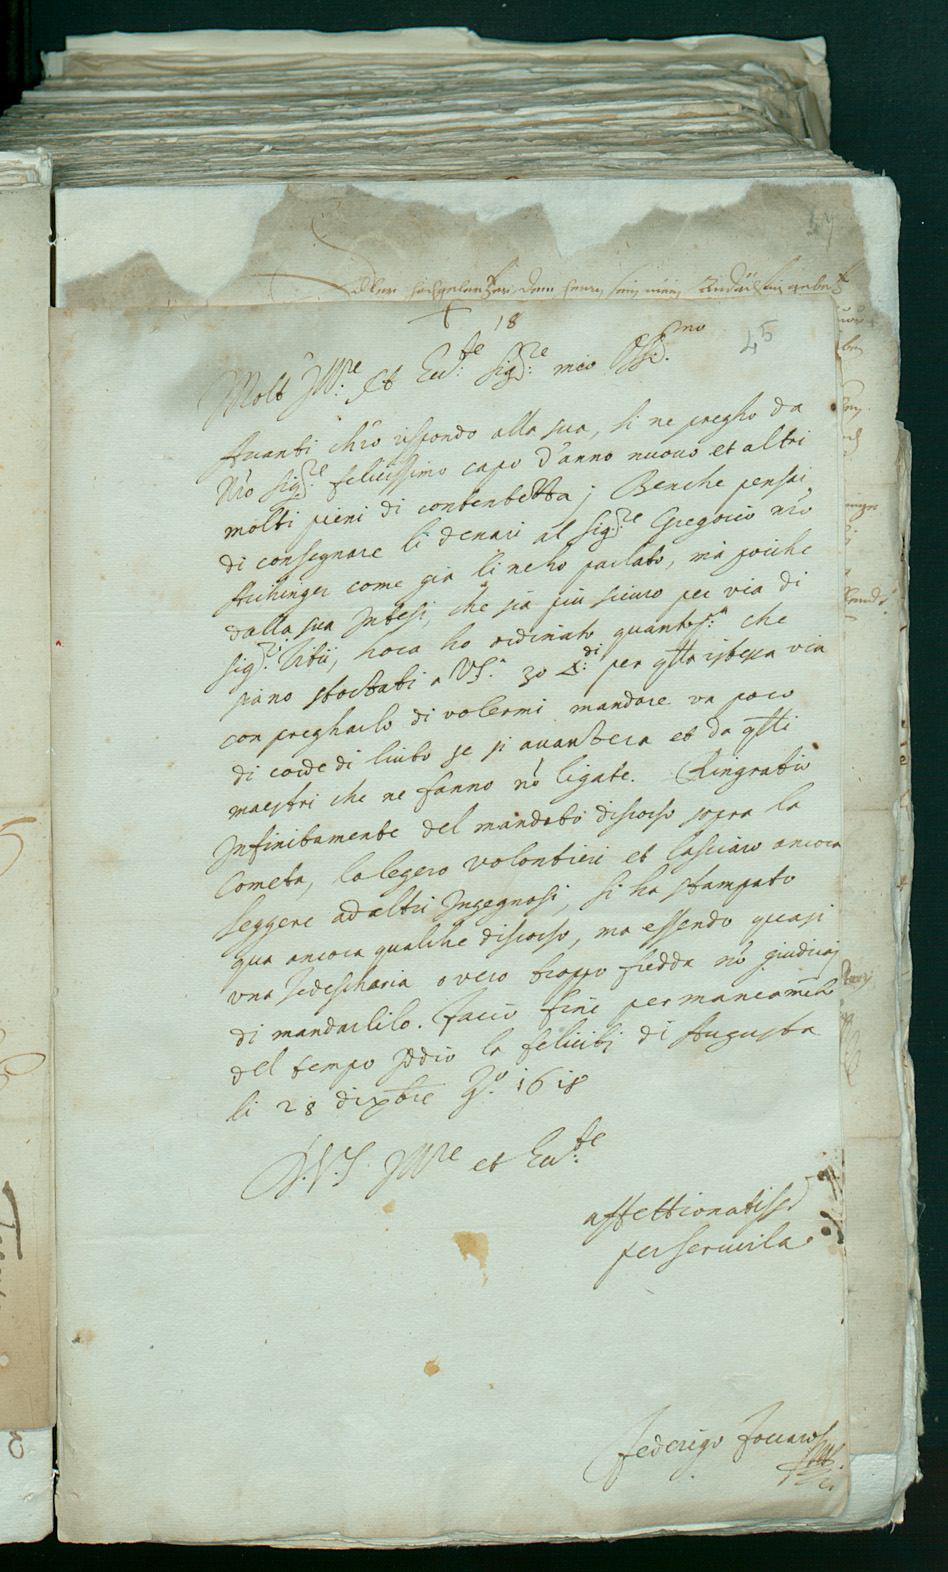 57
18
45
Molt Ill:re et Ecc:te Sig:re mio Oss:mo
Avanti ch'io rispondo alla sua, li ne pregho da
N'ro Sig:re felicissimo capo d'anno nuovo et altri
molti pieni di contentezza; Benche pensai
di consegnare li denari al Sig:re Gregorio n'ro
come gia li ne ho parlato, mà poiche
dalla sua Intesi, che sia piu sicuro per via di
Sig:ri hora ho ordinato che
siano sborsati a VS.a 30 per q'sta istessa via
con pregharlo di volermi mandare un poco
di corde di liuto se si et da q'sti
maestri che ne fanno nō ligate. Ringratio
Infinitamente del mandato discorso sopra la
Cometa, lo legero volontieri et lasciaro ancora
leggere ad altri Ingegnosi, Si ha stampato
qua ancora qualche discorso, ma essendo quasi
una Tedescharia overo troppo fredda nō giudicai
di mandarlilo. facio fine per mancamēto
del tempo Iddio la feliciti di Augusta
li 28 dixbre 1618
D.V.S. Ill.re et Ecc:te
affettionatiss
per servirla
Federigo